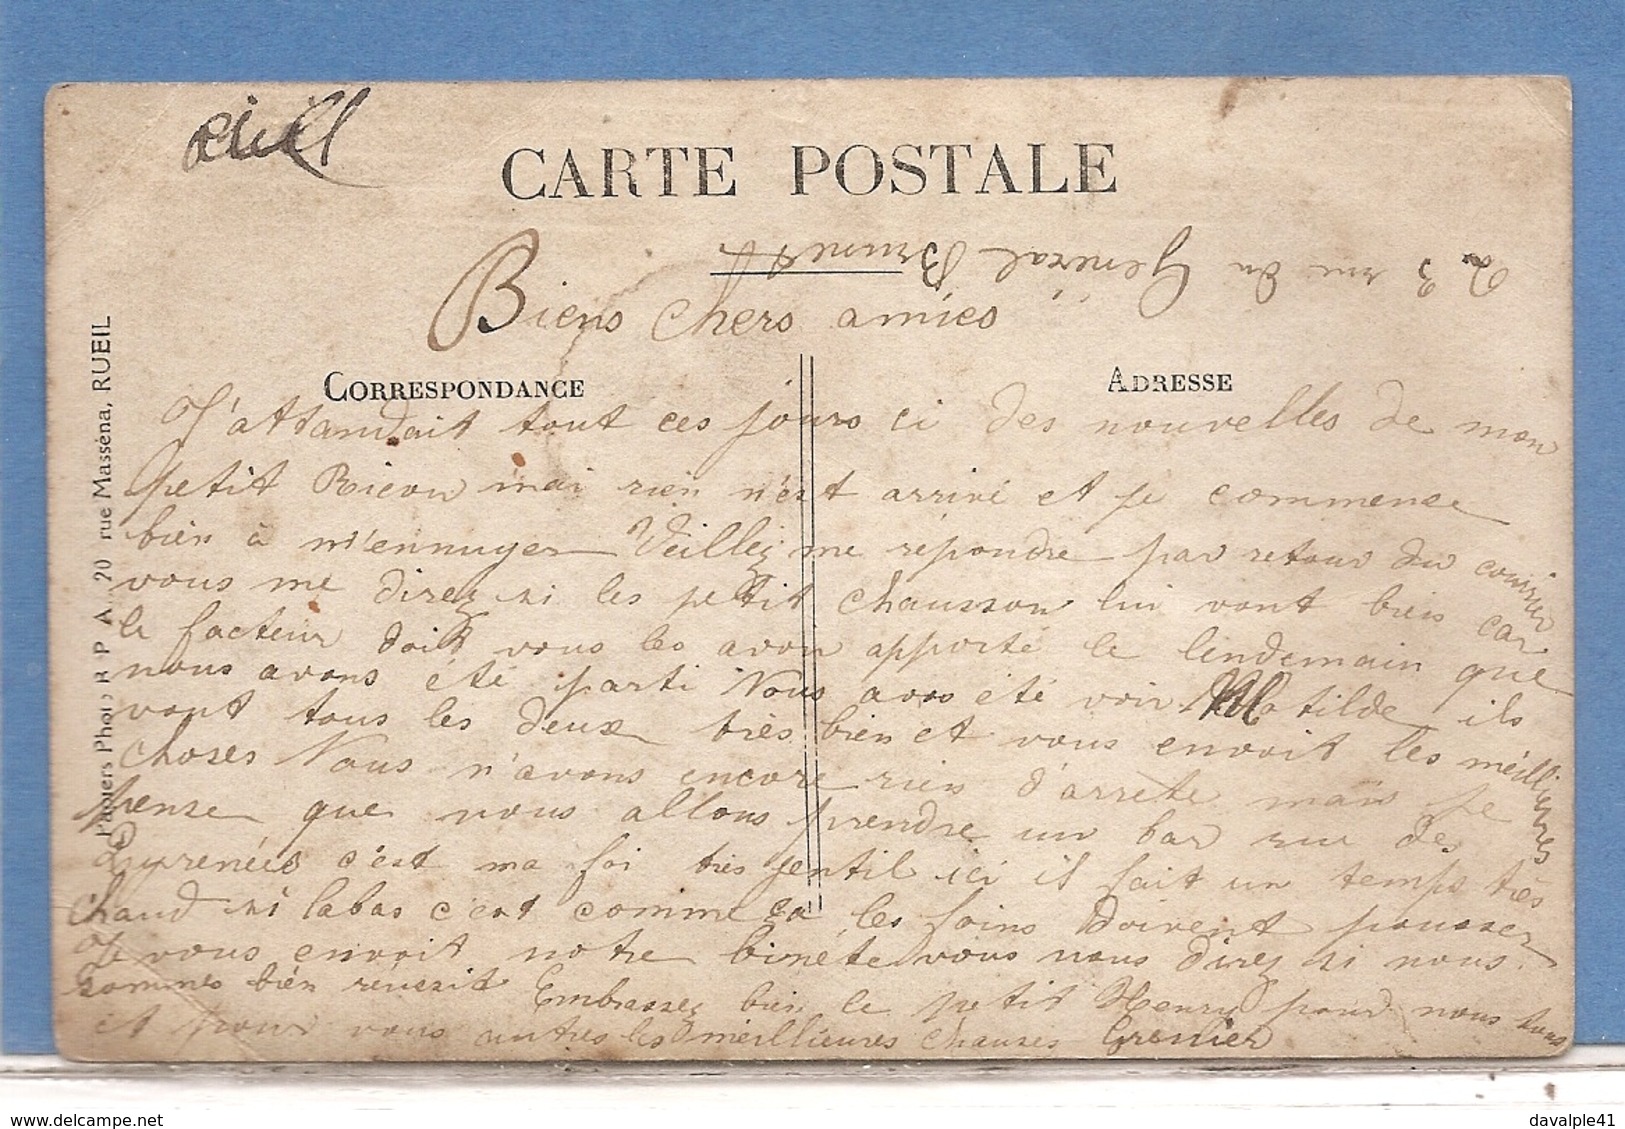 CARTE POSTALE
23 rue du Général Brunet
Biens chers amies
CORRESPONDANCE
ADRESSE
Papiers Phot R P A 20 rue Masséna, RUEIL
J'attandait tout ces jours ci des nouvelles de mon
petit mai rien n'est arrivé et je commense
bien à m'ennuyer Veillez me répondre par retour du courrier
vous me direz si les petit chausson lui vont bien car
le facteur doit vous les avoir apporté le lendemain que
nous avons été parti Nous avons été voir Matilde ils
vont tous les deux très bien et vous envoit les méillieures
choses Nous n'avons encore rien d'arrete mais je
pense que nous allons prendre un bar rue des
Pyrenées c'est ma foi très gentil ici il fait un temps très
chaud si labas c'est comme ça les foins doivent pousser
Je vous envoit notre binéte vous nous direz si nous
sommes bién reussit Embrassez bien le petit Henry pour nous tous
et pour vous autres les meillieures chauses Grenier
davalple41
www.delcampe.net